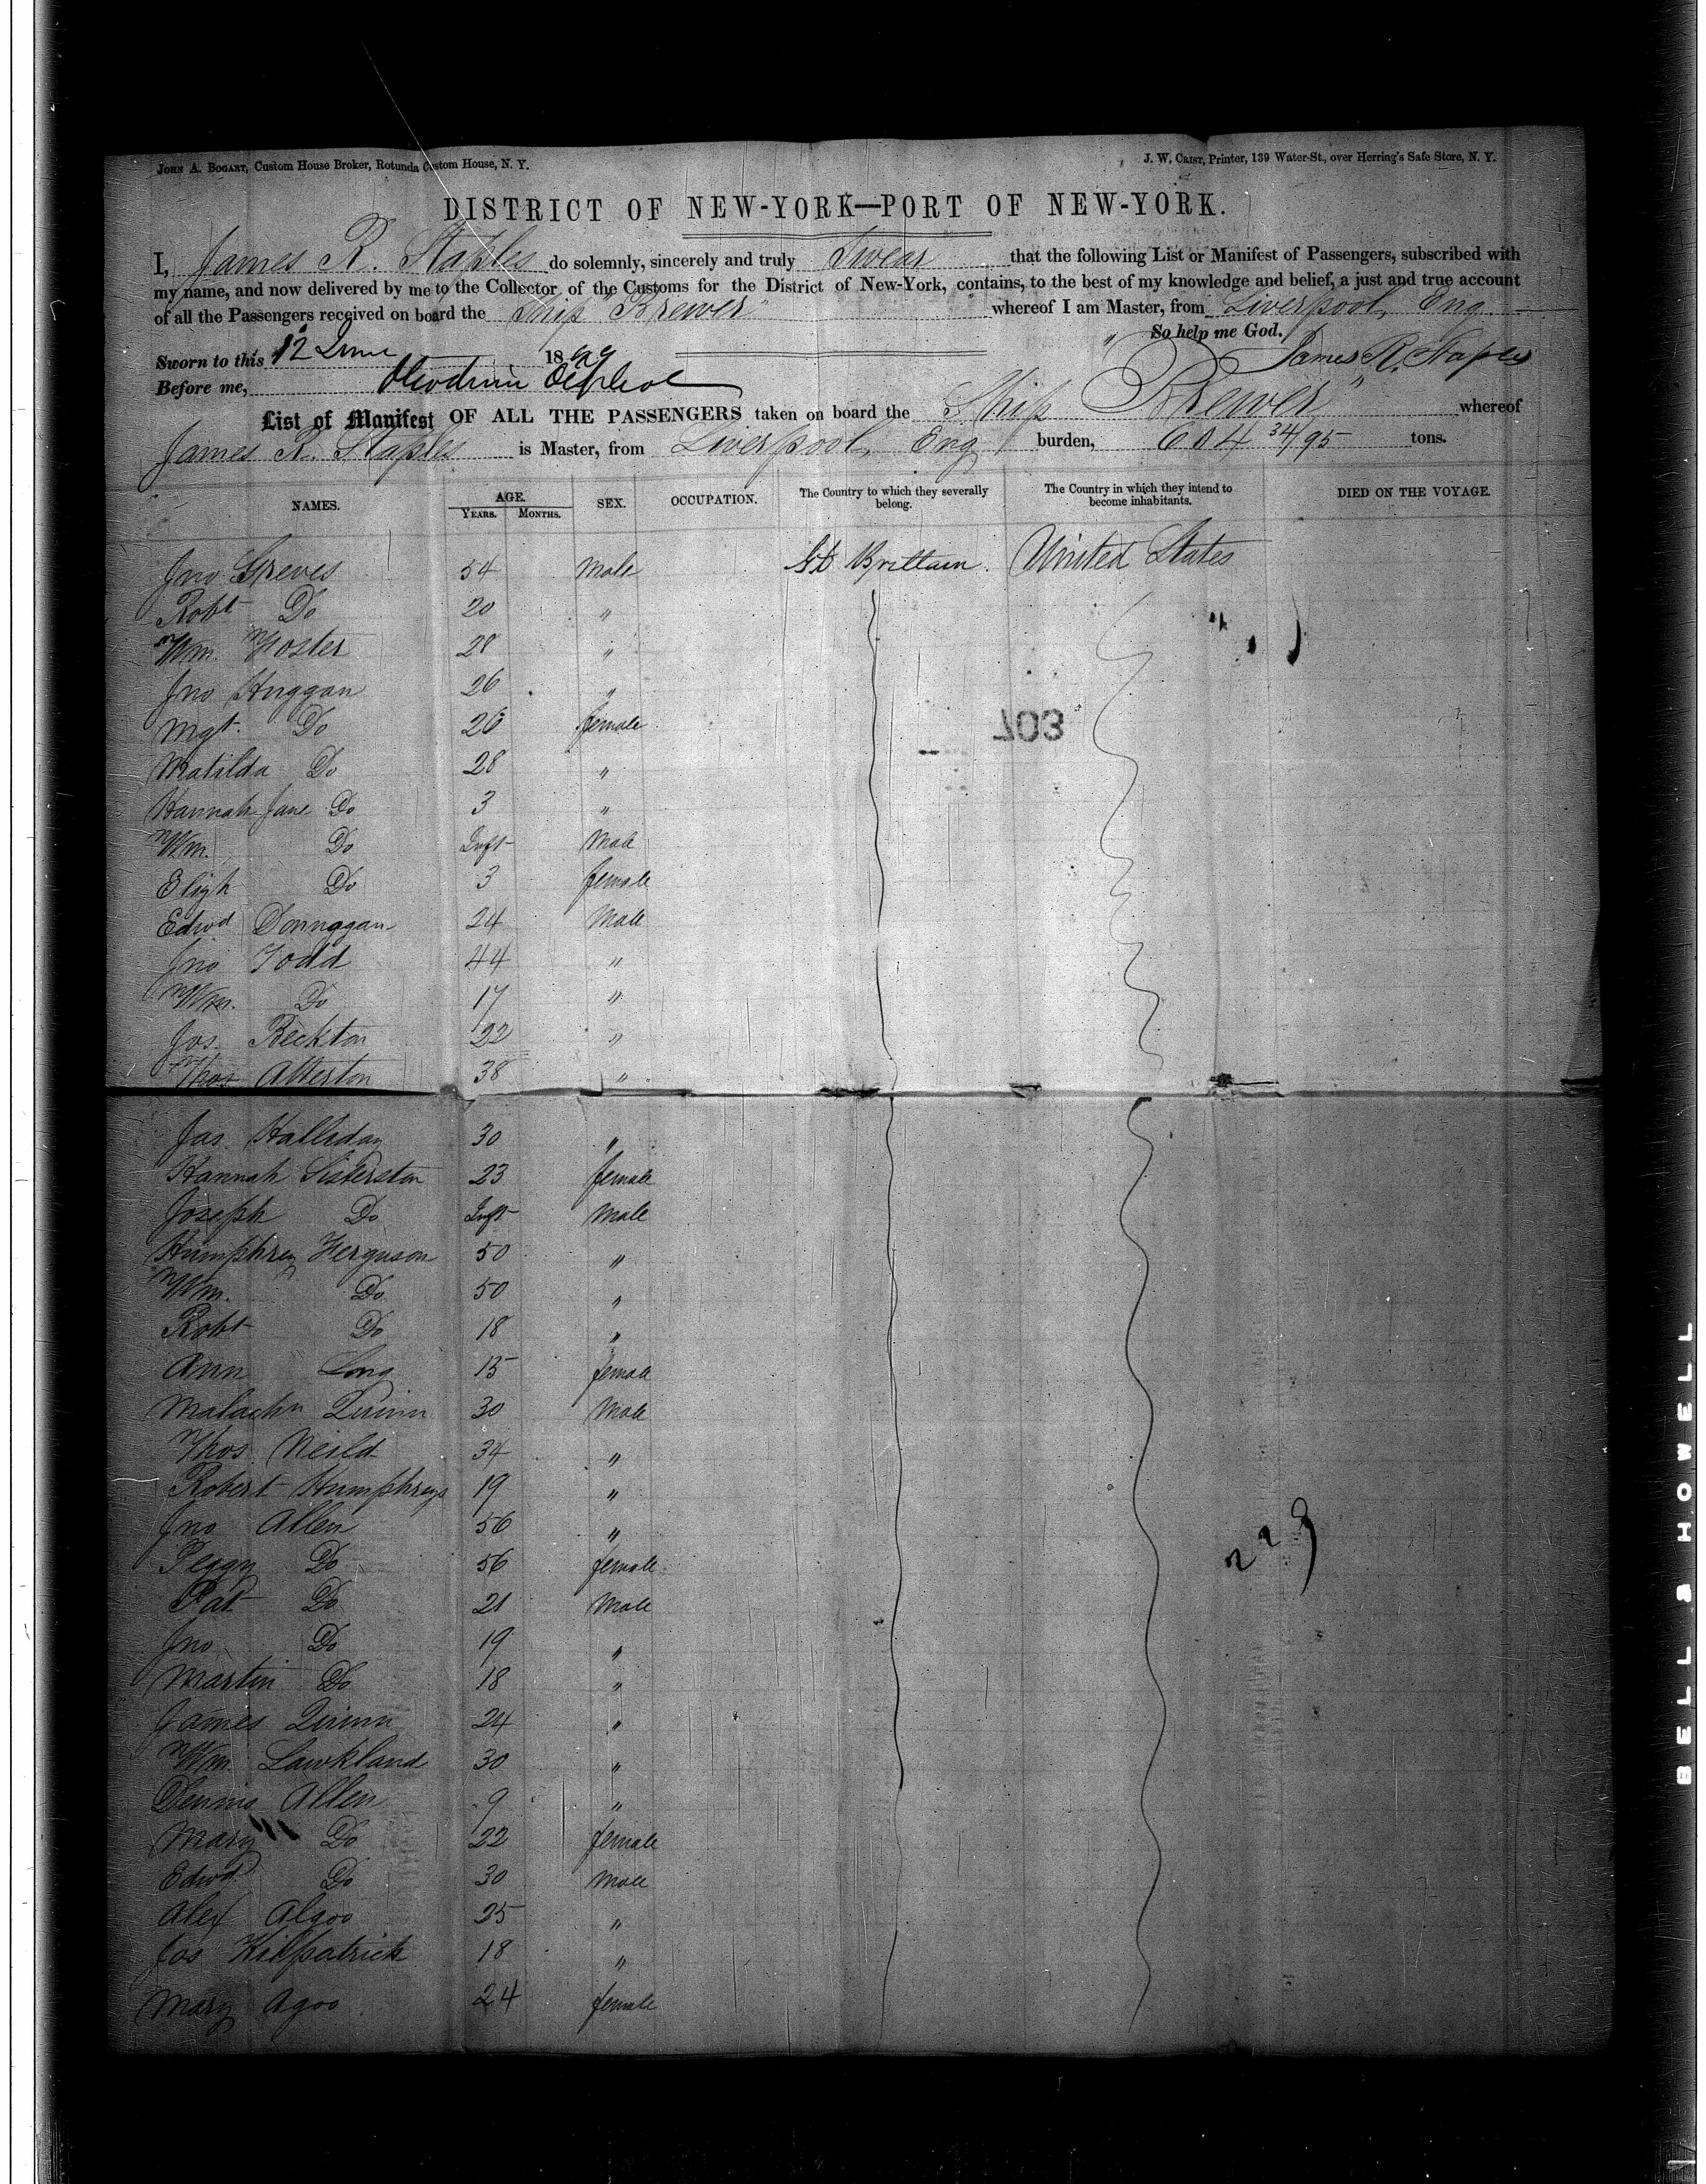 JOHN A. BOGART, Custom House Broker, Rotunda Custom House, N. Y.
J. W. CRIST, Printer, 139 Water-St., over Herring's Safe Store, N. Y.
DISTRICT OF NEW-YORK—PORT OF NEW-YORK.
I, James R. Staples do solemnly, sincerely and truly Swear that the following List or Manifest of Passengers, subscribed with
my name, and now delivered by me to the Collector of the Customs for the District of New-York, contains, to the best of my knowledge and belief, a just and true account
of all the Passengers received on board the Ship "Brewer" whereof I am Master, from Liverpool, Eng
So help me God.
Sworn to this 12 June 1849
James R. Staples
Before me,
List of Manifest OF ALL THE PASSENGERS taken on board the Ship "Brewer" whereof
James R. Staples is Master, from Liverpool, Eng burden, 604 34/95 tons.
NAMES. AGE. YEARS. MONTHS. SEX. OCCUPATION. The Country to which they severally belong. The Country in which they intend to become inhabitants. DIED ON THE VOYAGE.
Jno Greves 54 Male Gt Brittain. United States
Robt Do 20 "
Wm. Foster 28 "
Jno Huggan 26 "
Mgt. Do 26 female
703
Matilda Do 28 "
Hannah Jane Do 3 "
Wm. Do Inft Male
Do 3 female
Edwd Donnggan 24 Male
Jno Todd 44 "
Wm. Do 17 "
Jos. Beckton 22 "
Thos Atterton 38 "
Jas Halliday 30 "
Hannah Sisterston 23 female
Joseph Do Inft Male
Humphrey Ferguson 50 "
Wm. Do 50 "
Robt Do 18 "
Ann Long 15 female
Malachy Quinn 30 Male
Thos. Neild 34 "
Robert Humphreys 19 "
Jno Allen 56 "
229
Peggy Do 56 female
Pat Do 21 Male
Jno Do 19 "
Martin Do 18 "
James Quinn 24 "
Wm. Lawkland 30 "
Dennis Allen 9 "
Mary Do 22 female
Edwd Do 30 Male
Alex Algoo 25 "
Jos Kilpatrick 18 "
Mary Agoo 24 female
BELL & HOWELL